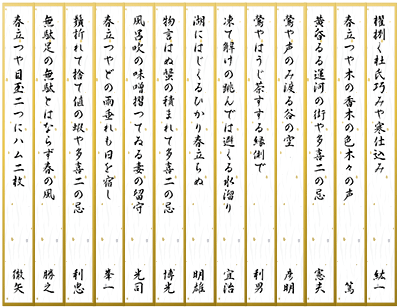 櫂捌く杜氏巧みや寒仕込み 紘一
春立つや木の香木の色木々の声 篤
黄昏るる運河の街や多喜二の忌 憲夫
鶯や声のみ渡る谷の空 彦明
鶯やほうじ茶すする縁側で 利男
凍て解けの跳んでは避くる水溜り 宜治
湖にはじくるひかり春立ちぬ 明雄
物言はぬ蟹の積まれて多喜二の忌 博光
風呂吹の味噌摺つてゐる妻の留守 光司
春立つやどの雨垂れも日を宿し 峯一
鬚折れて捨て値の蝦や多喜二の忌 利忠
無駄足の無駄とはならず春の風 勝之
春立つや目玉二つにハム二枚 徹矢